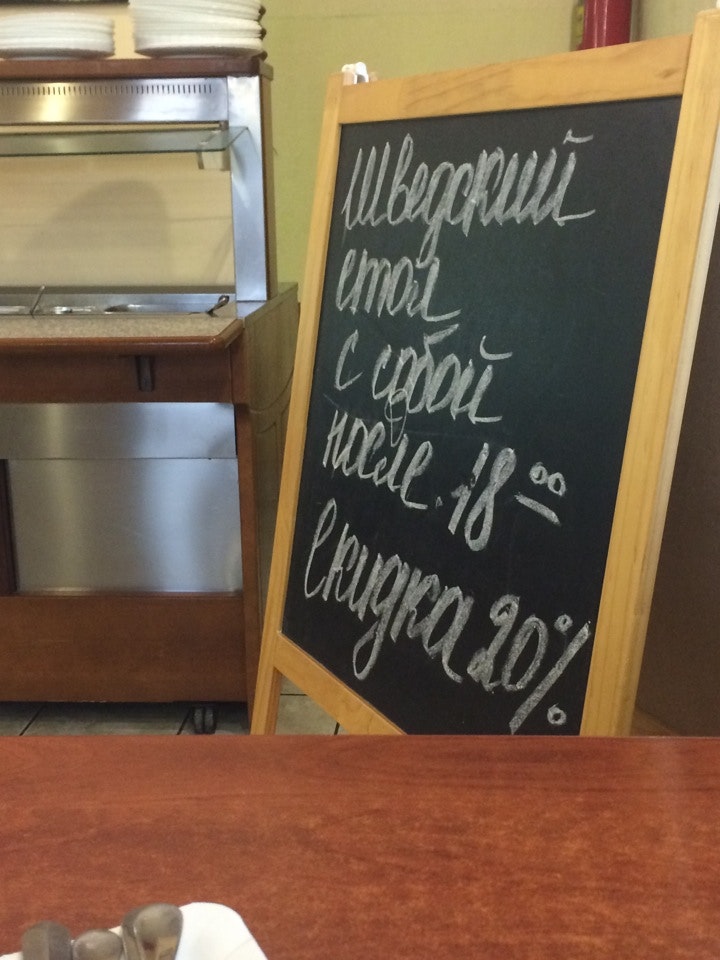 Шведский
стол
с собой
после 18⁰⁰
Скидка 20%